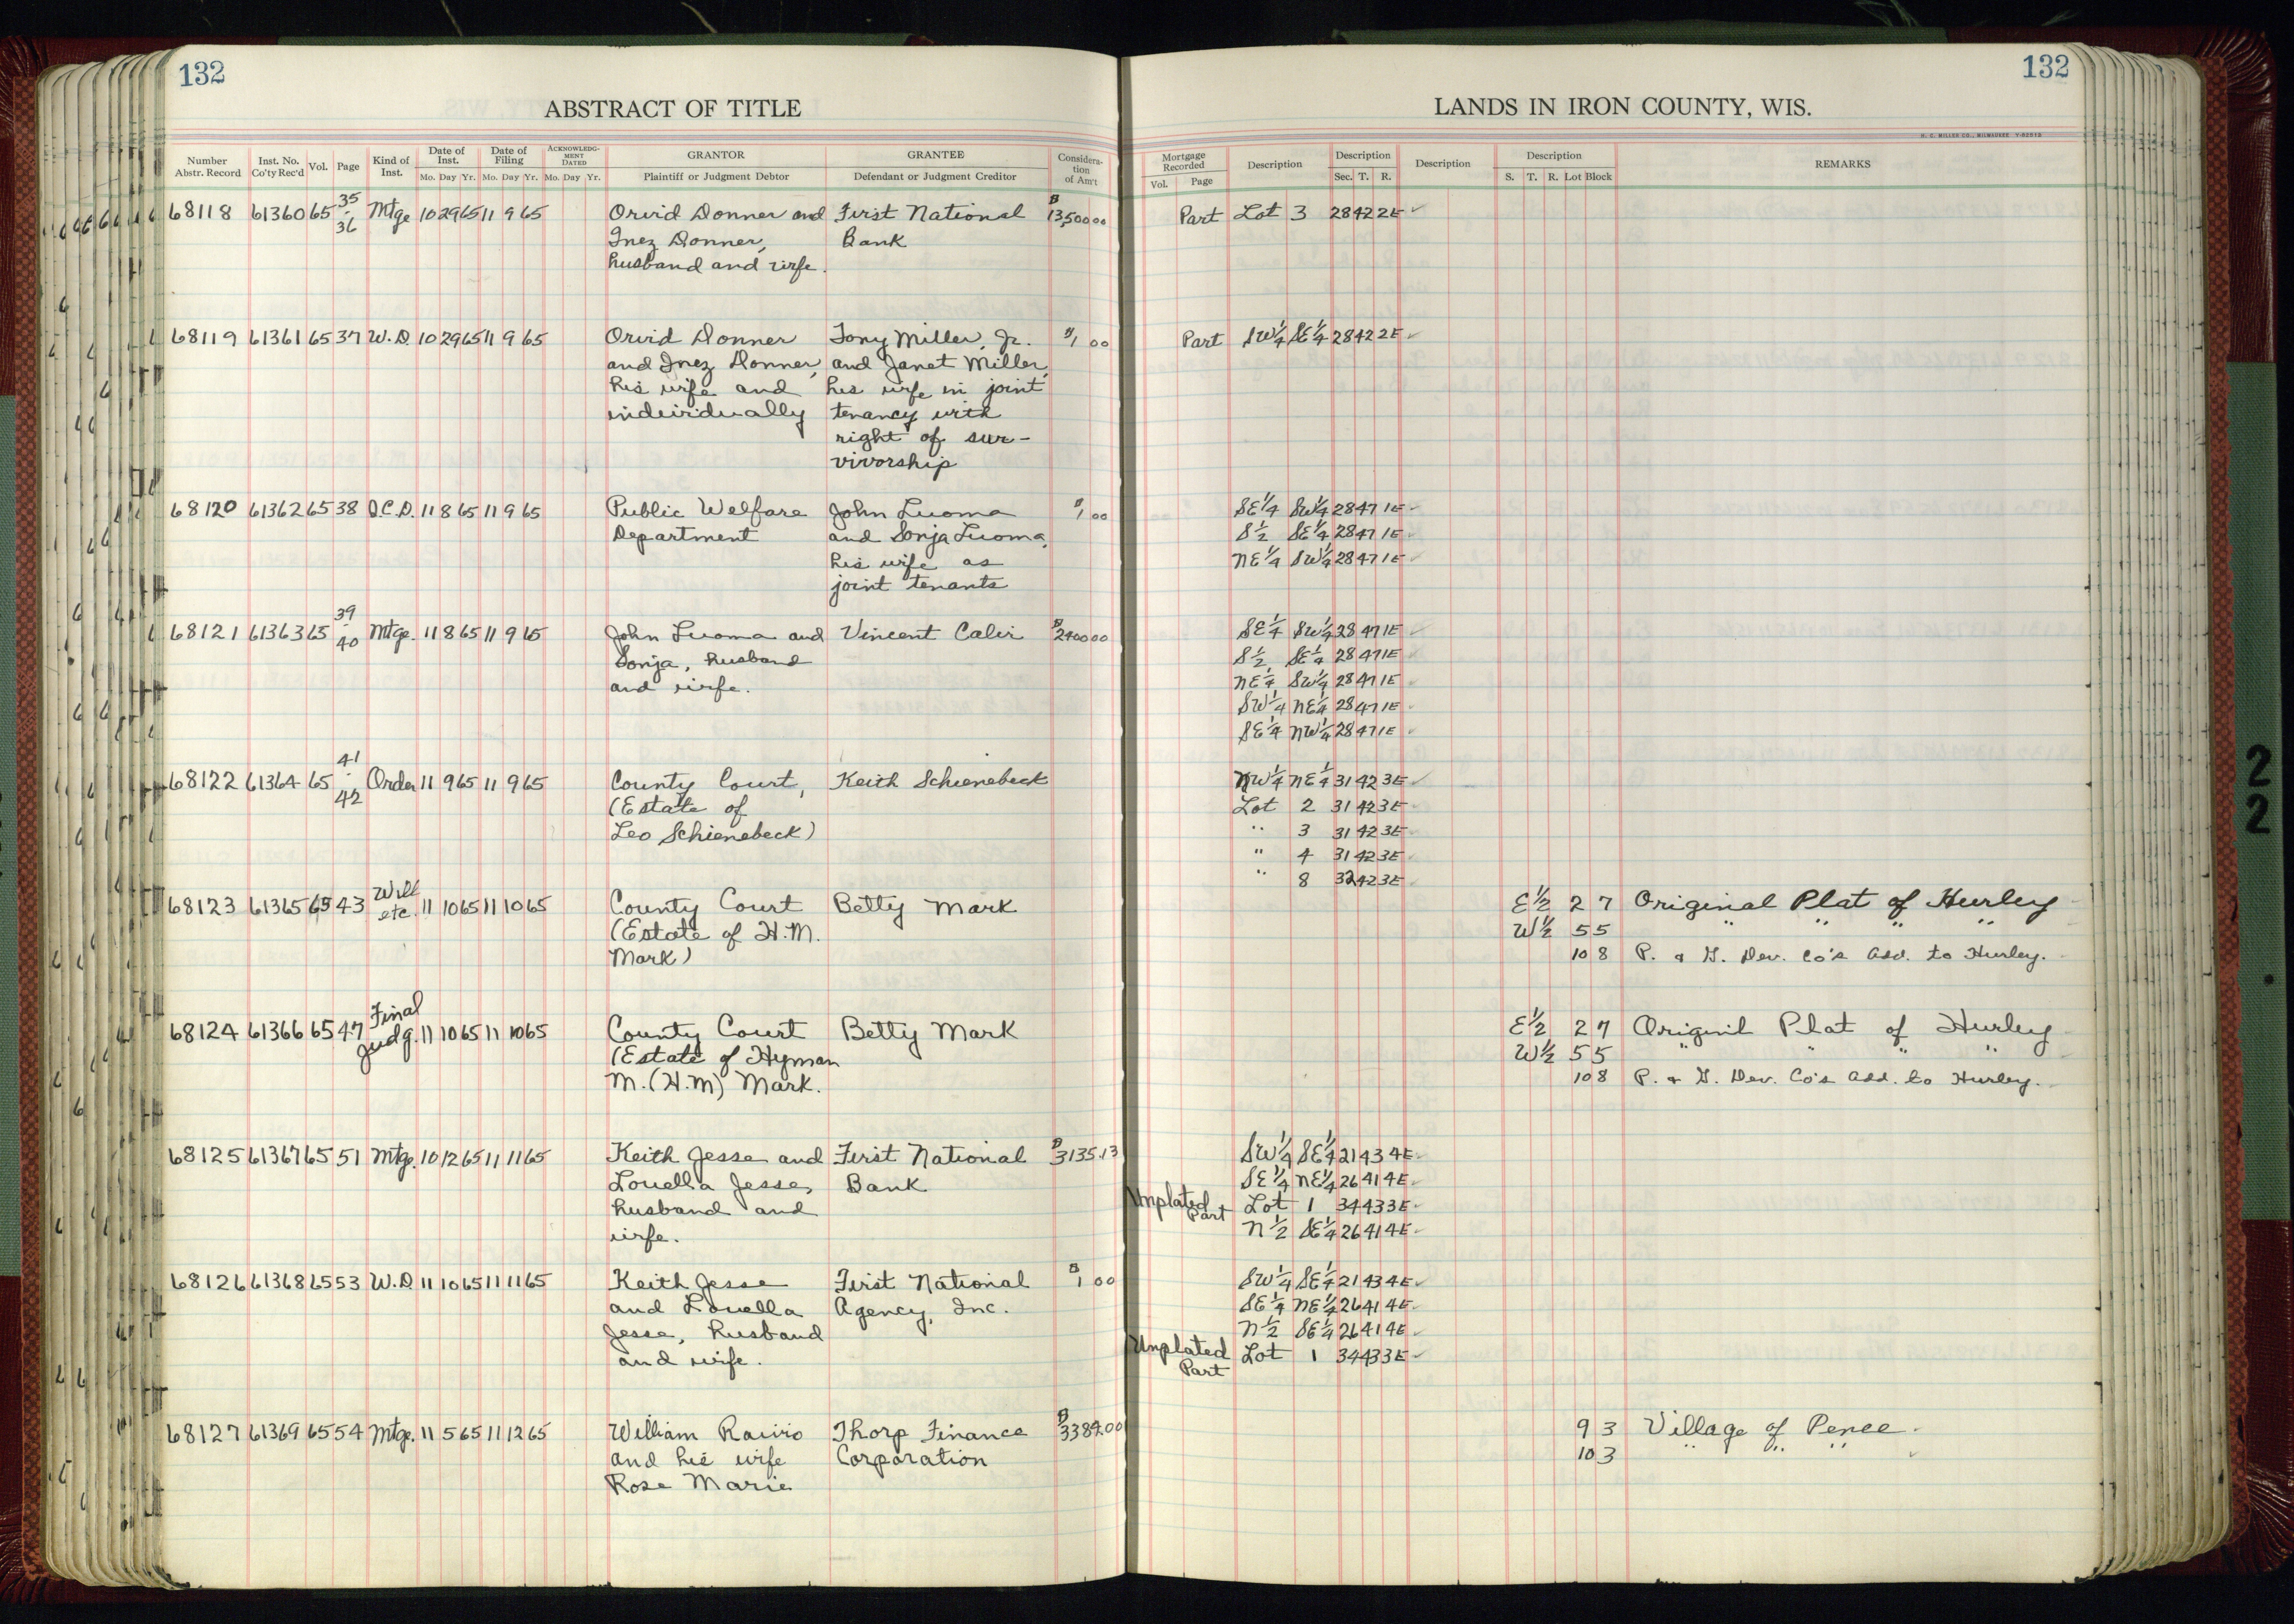 132
132
ABSTRACT OF TITLE
LANDS IN IRON COUNTY, WIS.
H. C. MILLER CO., MILWAUKEE
Number Abstr. Record Inst. No. Co'ty Rec'd Vol. Page Kind of Inst. Date of Inst. Mo. Day Yr. Date of Filing Mo. Day Yr. ACKNOWLEDG-MENT DATED Mo. Day Yr. GRANTOR Plaintiff or Judgment Debtor GRANTEE Defendant or Judgment Creditor Considera-tion of Am't
Mortgage Recorded Vol. Page Description Description Sec. T. R. Description Description S. T. R. Lot Block REMARKS
68118 61360 65 35-36 Mtge 10 29 65 11 9 65 Orvid Donner and First National $13,500 00 Part Lot 3 28 42 2E
Inez Donner, Bank
husband and wife.
68119 61361 65 37 W.D. 10 29 65 11 9 65 Orvid Donner Tony Miller, Jr. $1 00 Part SW1/4 SE1/4 28 42 2E
and Inez Donner, and Janet Miller,
his wife and his wife in joint
individually tenancy with
right of sur-
vivorship
68120 61362 65 38 Q.C.D. 11 8 65 11 9 65 Public Welfare John Luoma $1 00 SE1/4 SW1/4 28 47 1E
Department and Sonja Luoma, S1/2 SE1/4 28 47 1E
his wife as NE1/4 SW1/4 28 47 1E
joint tenants
68121 61363 65 39-40 Mtge. 11 8 65 11 9 65 John Luoma and Vincent Calvi $2400 00 SE1/4 SW1/4 28 47 1E
Sonja, husband S1/2 SE1/4 28 47 1E
and wife. NE1/4 SW1/4 28 47 1E
SW1/4 NE1/4 28 47 1E
SE1/4 NW1/4 28 47 1E
68122 61364 65 41-42 Order 11 9 65 11 9 65 County Court, Keith Schienebeck NW1/4 NE1/4 31 42 3E
(Estate of Lot 2 31 42 3E
Leo Schienebeck) " 3 31 42 3E
" 4 31 42 3E
" 8 32 42 3E
68123 61365 65 43 Will etc. 11 10 65 11 10 65 County Court Betty Mark E1/2 2 7 Original Plat of Hurley
(Estate of H.M. W1/2 5 5 " " " "
Mark) 10 8 P. & G. Dev. Co's Add. to Hurley.
68124 61366 65 47 Final Judg. 11 10 65 11 10 65 County Court Betty Mark E1/2 2 7 Originil Plat of Hurley
(Estate of Hyman W1/2 5 5 " " " "
M. (H.M) Mark. 10 8 P. & G. Dev. Co's Add. to Hurley.
68125 61367 65 51 Mtge. 10 12 65 11 11 65 Keith Jesse and First National $3135.13 SW1/4 SE1/4 21 43 4E
Louella Jesse, Bank SE1/4 NE1/4 26 41 4E
husband and Unplated Part Lot 1 34 43 3E
wife. N1/2 SE1/4 26 41 4E
68126 61368 65 53 W.D. 11 10 65 11 11 65 Keith Jesse First National $1 00 SW1/4 SE1/4 21 43 4E
and Louella Agency, Inc. SE1/4 NE1/4 26 41 4E
Jesse, husband N1/2 SE1/4 26 41 4E
and wife. Unplated Part Lot 1 34 43 3E
68127 61369 65 54 Mtge. 11 5 65 11 12 65 William Raivio Thorp Finance $3384.00 9 3 Village of Pence
and his wife Corporation 10 3 " " "
Rose Marie
2
2